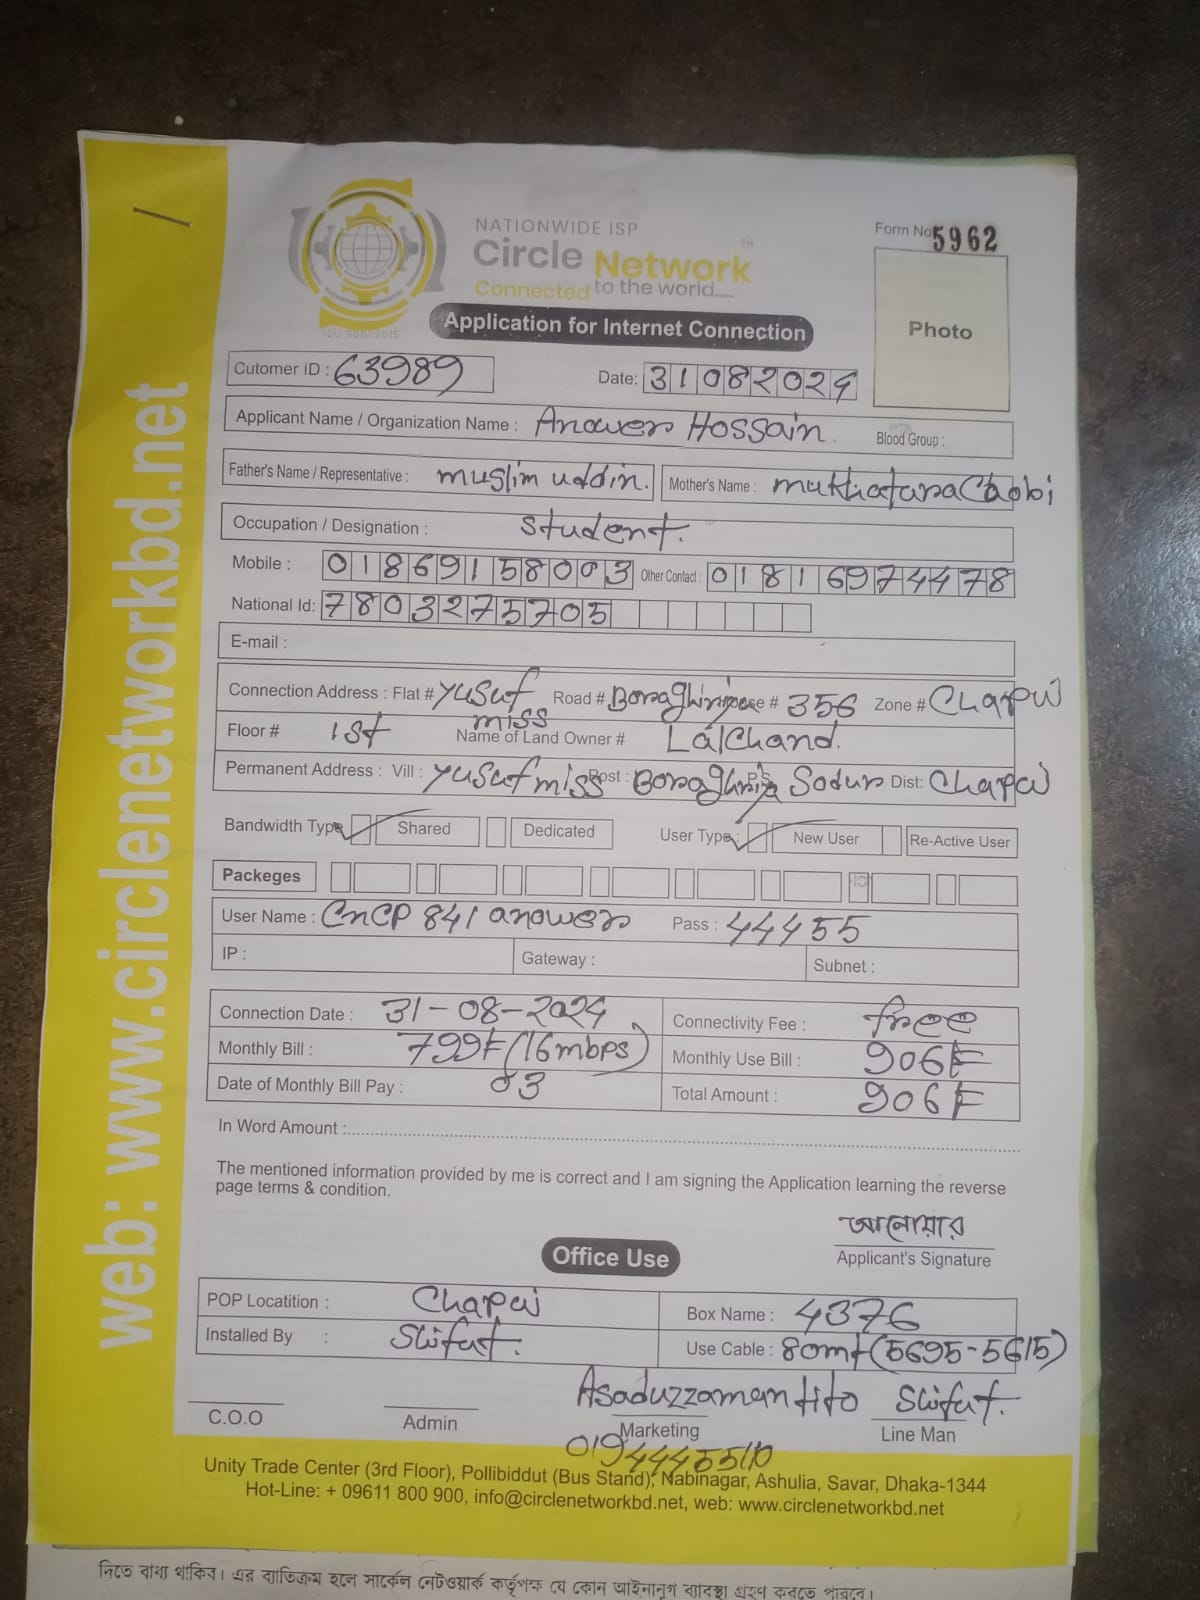 NATIONWIDE ISP
Circle Network
Connected to the world.....
ISO 9001:2015
Form No 5962
Photo
Application for Internet Connection
Cutomer ID : 63989
Date: 31082024
Applicant Name / Organization Name : Anower Hossain. Blood Group :
Father's Name / Representative : muslim uddin. Mother's Name :
Occupation / Designation : student.
Mobile : 01869158003 Other Contact : 01816974478
National Id: 7803275705
E-mail :
Connection Address : Flat # Yusuf miss Road # House # 356 Zone # Chapai
Floor # 1st Name of Land Owner # Lalchand.
Permanent Address : Vill : Yusuf miss Post : P.S Sodur Dist: Chapai
Bandwidth Type Shared Dedicated User Type : New User Re-Active User
Packeges
User Name : CNCP 841 anower Pass : 44455
IP : Gateway : Subnet :
Connection Date : 31-08-2024 Connectivity Fee : free
Monthly Bill : 799৳ (16mbps) Monthly Use Bill : 906৳
Date of Monthly Bill Pay : 03 Total Amount : 906৳
In Word Amount :..........
The mentioned information provided by me is correct and I am signing the Application learning the reverse
page terms & condition.
আনোয়ার
Applicant's Signature
Office Use
POP Locatition : Chapai Box Name : 4376
Installed By : Sifat. Use Cable : 80mt (5695-5615)
Asaduzzaman tito Sifat.
C.O.O Admin Marketing Line Man
Unity Trade Center (3rd Floor), Pollibiddut (Bus Stand), Nabinagar, Ashulia, Savar, Dhaka-1344
Hot-Line: + 09611 800 900, info@circlenetworkbd.net, web: www.circlenetworkbd.net
web: www.circlenetworkbd.net
দিতে বাধ্য থাকিব। এর ব্যতিক্রম হলে সার্কেল নেটওয়ার্ক কর্তৃপক্ষ যে কোন আইনানুগ ব্যবস্থা গ্রহণ করতে পারবে।